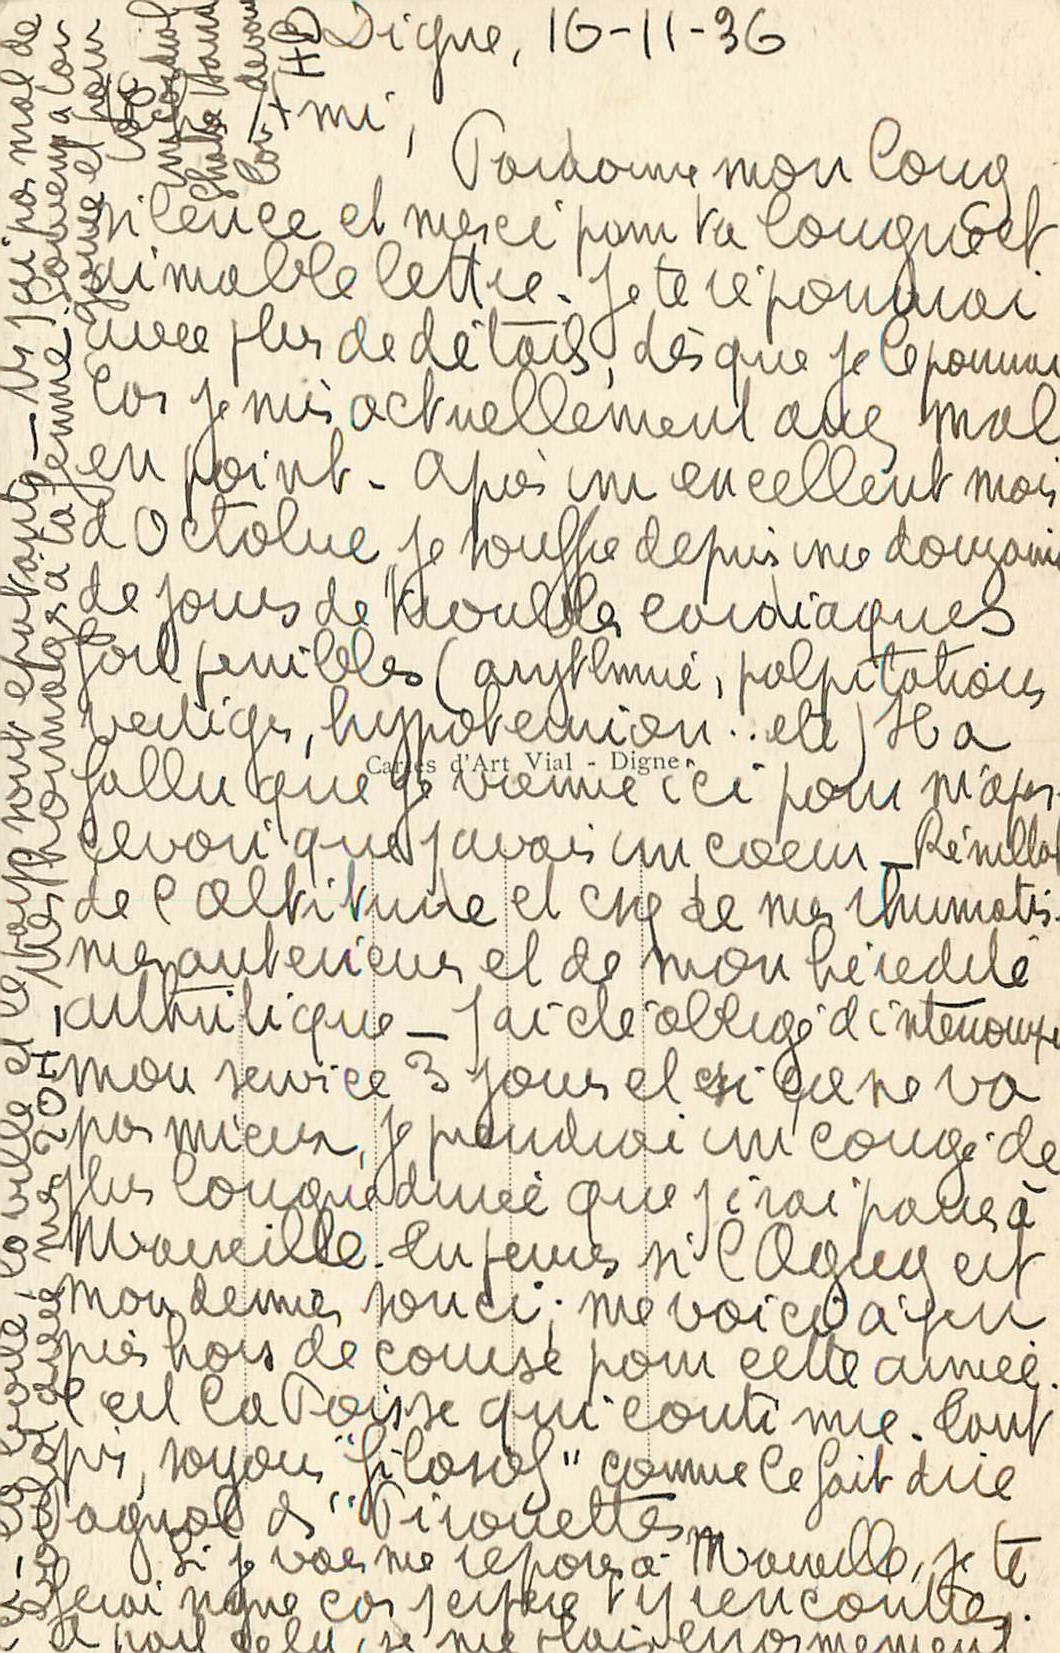 Digne, 16-11-36
Ami,
Pardonne mon long
silence et merci pour ta longue et
aimable lettre. Je te répondrai
avec plus de détails, dès que je le pourrai
Car je suis actuellement assez mal
en point - Après un excellent mois
d'Octobre je souffre depuis une douzaine
de jours de troubles cardiaques
fort pénibles (arythmie, palpitations
vertiges, hypotension... etc) Il a
Cartes d'Art Vial - Digne
fallu que je vienne ici pour m'aper-
cevoir que j'avais un coeur - Résultat
de l'Altitude et de mes rhumatis-
mes antérieurs et de mon hérédité
arthritique - J'ai été obligé d'interrompre
mon service 3 jours et si ça ne va
pas mieux, je prendrai un congé de
plus longue durée que j'irai passer à
Marseille. Tu penses si l'Agreg est
mon dernier souci; me voici à peu
près hors de course pour cette année.
C'est la Poisse qui continue. Tant
pis, soyons "filosof" comme le fait dire
Pagnol ds "Pirouettes"
Si je vais me reposer à Marseille, je te
ferai signe car j'espère t'y rencontrer.
A part cela, je me plais énormément
la ville et le pays sont épatants - Ms j'ai pas mal de
mes 20 H. Mes hommages à ta femme; souvenir à Lou
jeune et pour
toi
ma cordiale
Shake Hand
Ton